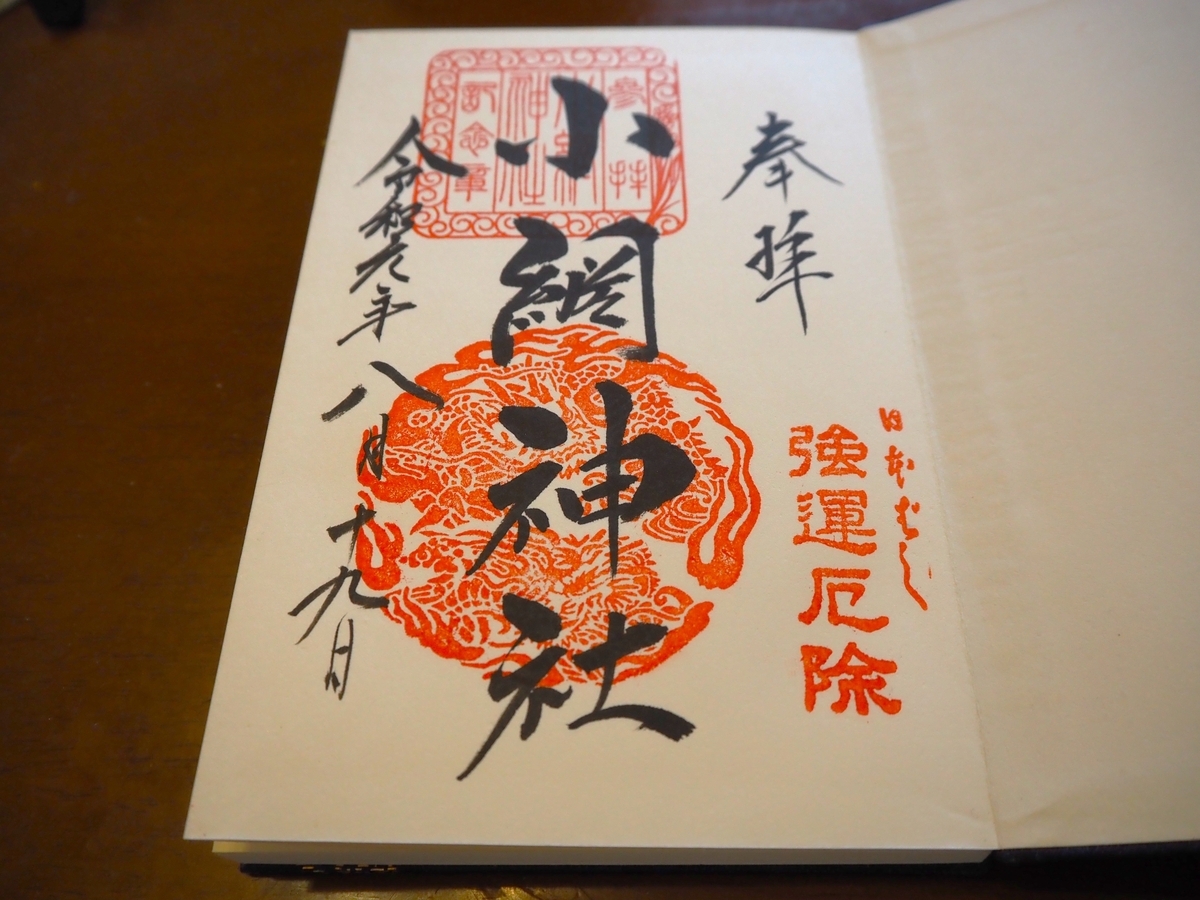 奉拝
日本ばし
強運厄除
小網神社
参拝
小網
神社
記念章
令和元年八月十九日